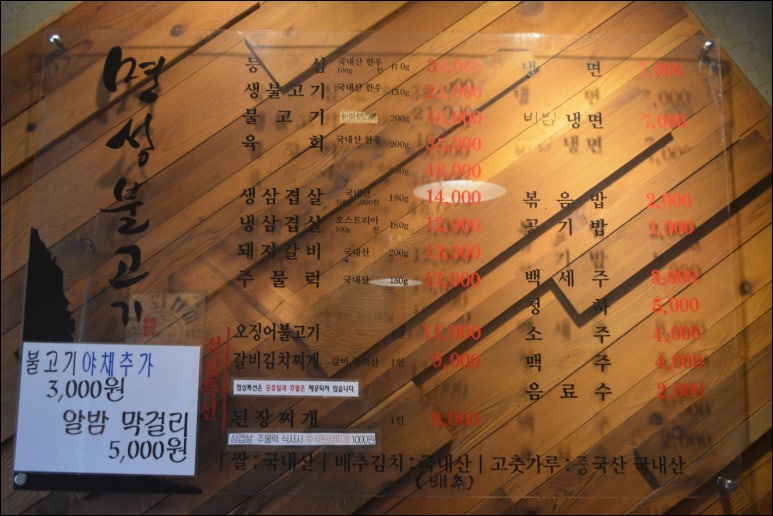 명성불고기
등심 국내산 한우
생불고기 국내산 한우 150g
불고기 200g
육회 국내산 한우 200g
48,000
생삼겹살 국내산 180g 14,000
냉삼겹살 오스트리아 180g
돼지갈비 국내산 200g
주물럭 국내산 180g
점심특선
오징어불고기
갈비김치찌개 1인
점심특선은 공휴일과 주말은 제공되지 않습니다.
된장찌개 1인
삼겹살 주물럭 식사시 후식된장찌개 1000원
냉면
비빔냉면 7,000
볶음밥 2,000
공기밥 2,000
백세주 8,000
청하 5,000
소주 4,000
맥주 4,000
음료수 2,000
불고기 야채추가
3,000원
알밤 막걸리
5,000원
| 쌀 : 국내산 | 배추김치 : 국내산 | 고춧가루 : 중국산 국내산
(배추)